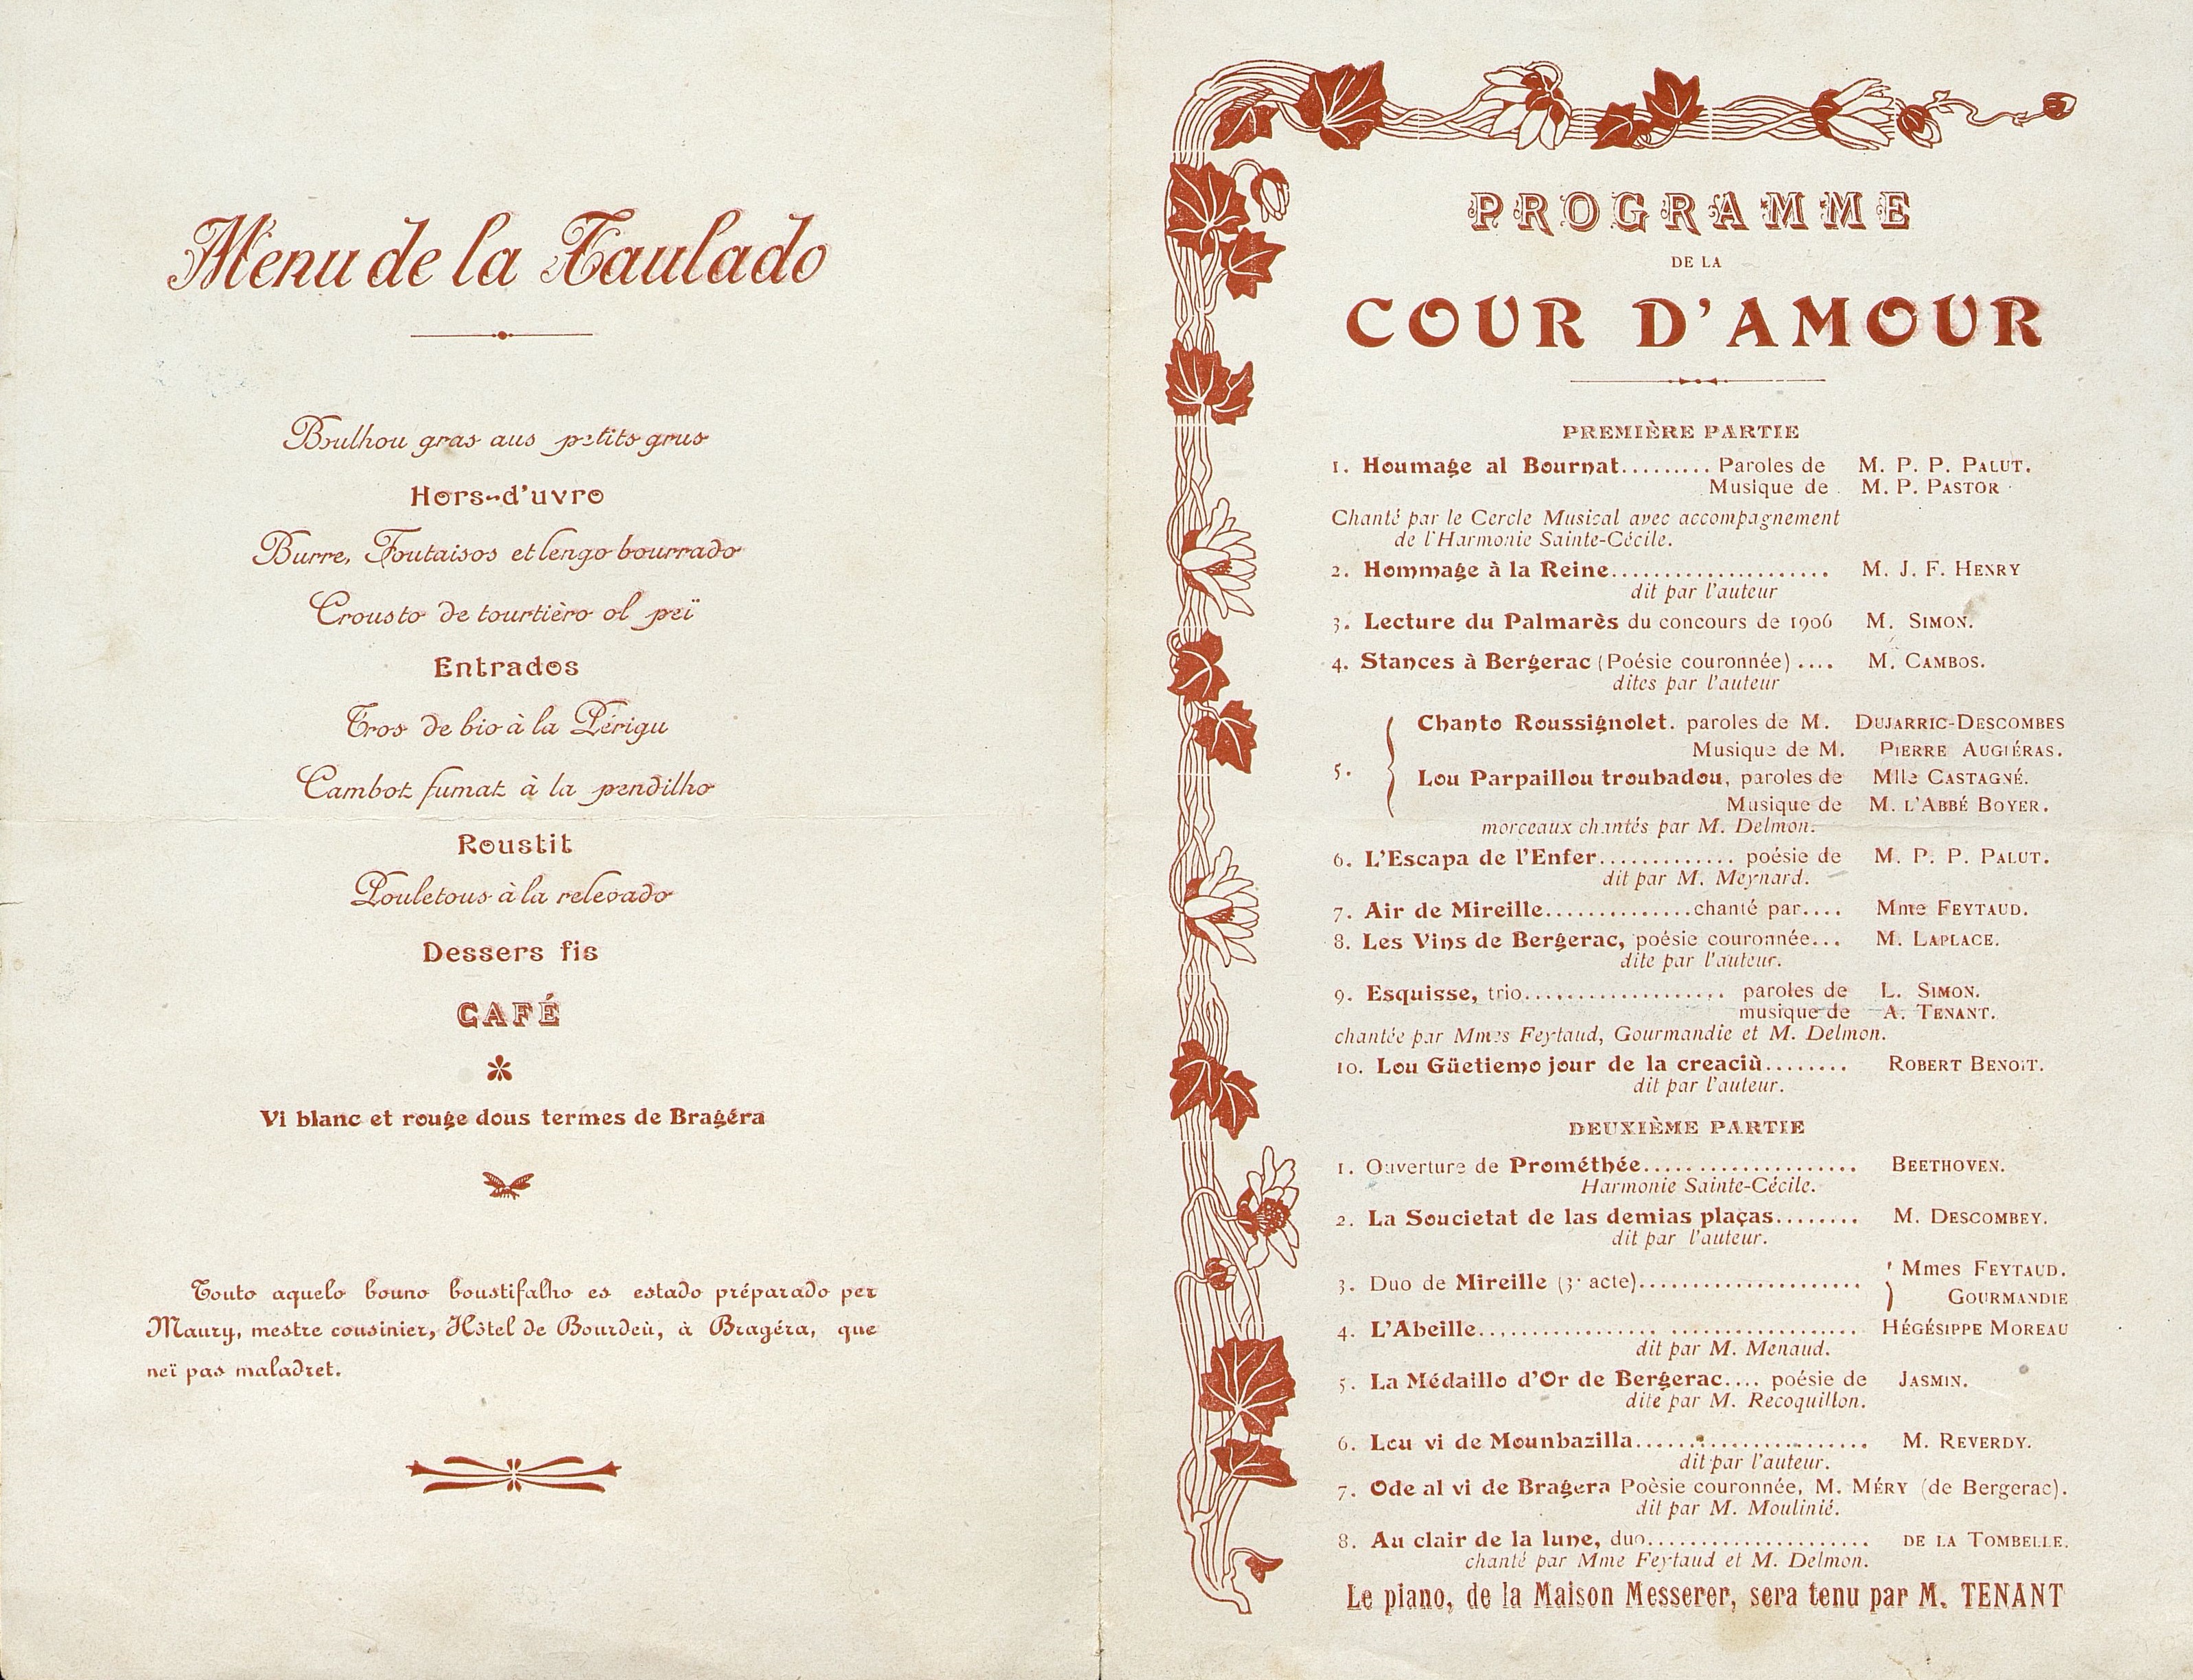 Menu de la Taulado
Boulhou gras aus petits grus
Hors-d'uvro
Burre, Foutaisos et lengo bourrado
Crousto de tourtièro ol peï
Entrados
Tros de bio à la Périgu
Cambot fumat à la pendilho
Roustit
Pouletous à la relevado
Dessers fis
CAFÉ
Vi blanc et rouge dous termes de Bragéra
Touto aquelo bouno boustifalho es estado préparado per
Maury, mestre cousinier, Hôtel de Bourdeù, à Bragéra, que
neï pas maladret.
PROGRAMME
DE LA
COUR D'AMOUR
PREMIÈRE PARTIE
1. Houmage al Bournat......... Paroles de M. P. P. PALUT.
Musique de M. P. PASTOR
Chanté par le Cercle Musical avec accompagnement
de l'Harmonie Sainte-Cécile.
2. Hommage à la Reine...................... M. J. F. HENRY
dit par l'auteur
3. Lecture du Palmarès du concours de 1906 M. SIMON.
4. Stances à Bergerac (Poésie couronnée) .... M. CAMBOS.
dites par l'auteur
5. Chanto Roussignolet. paroles de M. DUJARRIC-DESCOMBES
Musique de M. PIERRE AUGIÉRAS.
Lou Parpaillou troubadou, paroles de Mlle CASTAGNÉ.
Musique de M. L'ABBÉ BOYER.
morceaux chantés par M. Delmon.
6. L'Escapa de l'Enfer............. poésie de M. P. P. PALUT.
dit par M. Meynard.
7. Air de Mireille..............chanté par.... Mme FEYTAUD.
8. Les Vins de Bergerac, poésie couronnée... M. LAPLACE.
dite par l'auteur.
9. Esquisse, trio.................... paroles de L. SIMON.
musique de A. TENANT.
chantée par Mmes Feytaud, Gourmandie et M. Delmon.
10. Lou Güetiemo jour de la creaciù........ ROBERT BENOIT.
dit par l'auteur.
DEUXIÈME PARTIE
1. Ouverture de Prométhée..................... BEETHOVEN.
Harmonie Sainte-Cécile.
2. La Soucietat de las demias plaças........ M. DESCOMBEY.
dit par l'auteur.
3. Duo de Mireille (3e acte)...................... Mmes FEYTAUD.
GOURMANDIE
4. L'Abeille..................................... HÉGÉSIPPE MOREAU
dit par M. Menaud.
5. La Médaillo d'Or de Bergerac.... poésie de JASMIN.
dite par M. Recoquillon.
6. Lou vi de Mounbazilla....................... M. REVERDY.
dit par l'auteur.
7. Ode al vi de Bragera Poèsie couronnée, M. MÉRY (de Bergerac).
dit par M. Moulinié.
8. Au clair de la lune, duo...................... DE LA TOMBELLE.
chanté par Mme Feytaud et M. Delmon.
Le piano, de la Maison Messerer, sera tenu par M. TENANT